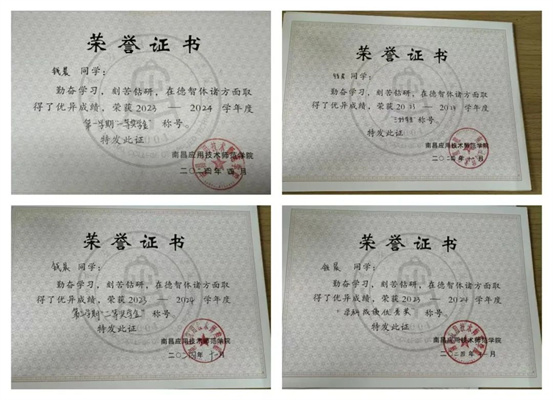 荣誉证书
钱晨 同学：
勤奋学习，刻苦钻研，在德智体诸方面取
得了优异成绩，荣获2023 — 2024 学年度
第一学期"一等奖学金" 称号
特发此证
南昌应用技术师范学院
二〇二四年 四 月
荣誉证书
同学：
勤奋学习，刻苦钻研，在德智体诸方面取
得了优异成绩，荣获 — 学年度
称号
特发此证
南昌应用技术师范学院
二〇二四年 月
荣誉证书
钱晨 同学：
勤奋学习，刻苦钻研，在德智体诸方面取
得了优异成绩，荣获2023 — 2024 学年度
学期"二等奖学金" 称号
特发此证
南昌应用技术师范学院
二〇二四年 月
荣誉证书
同学：
勤奋学习，刻苦钻研，在德智体诸方面取
得了优异成绩，荣获2023 — 2024 学年度
成绩优秀奖 称号
特发此证
南昌应用技术师范学院
二〇二四年 月